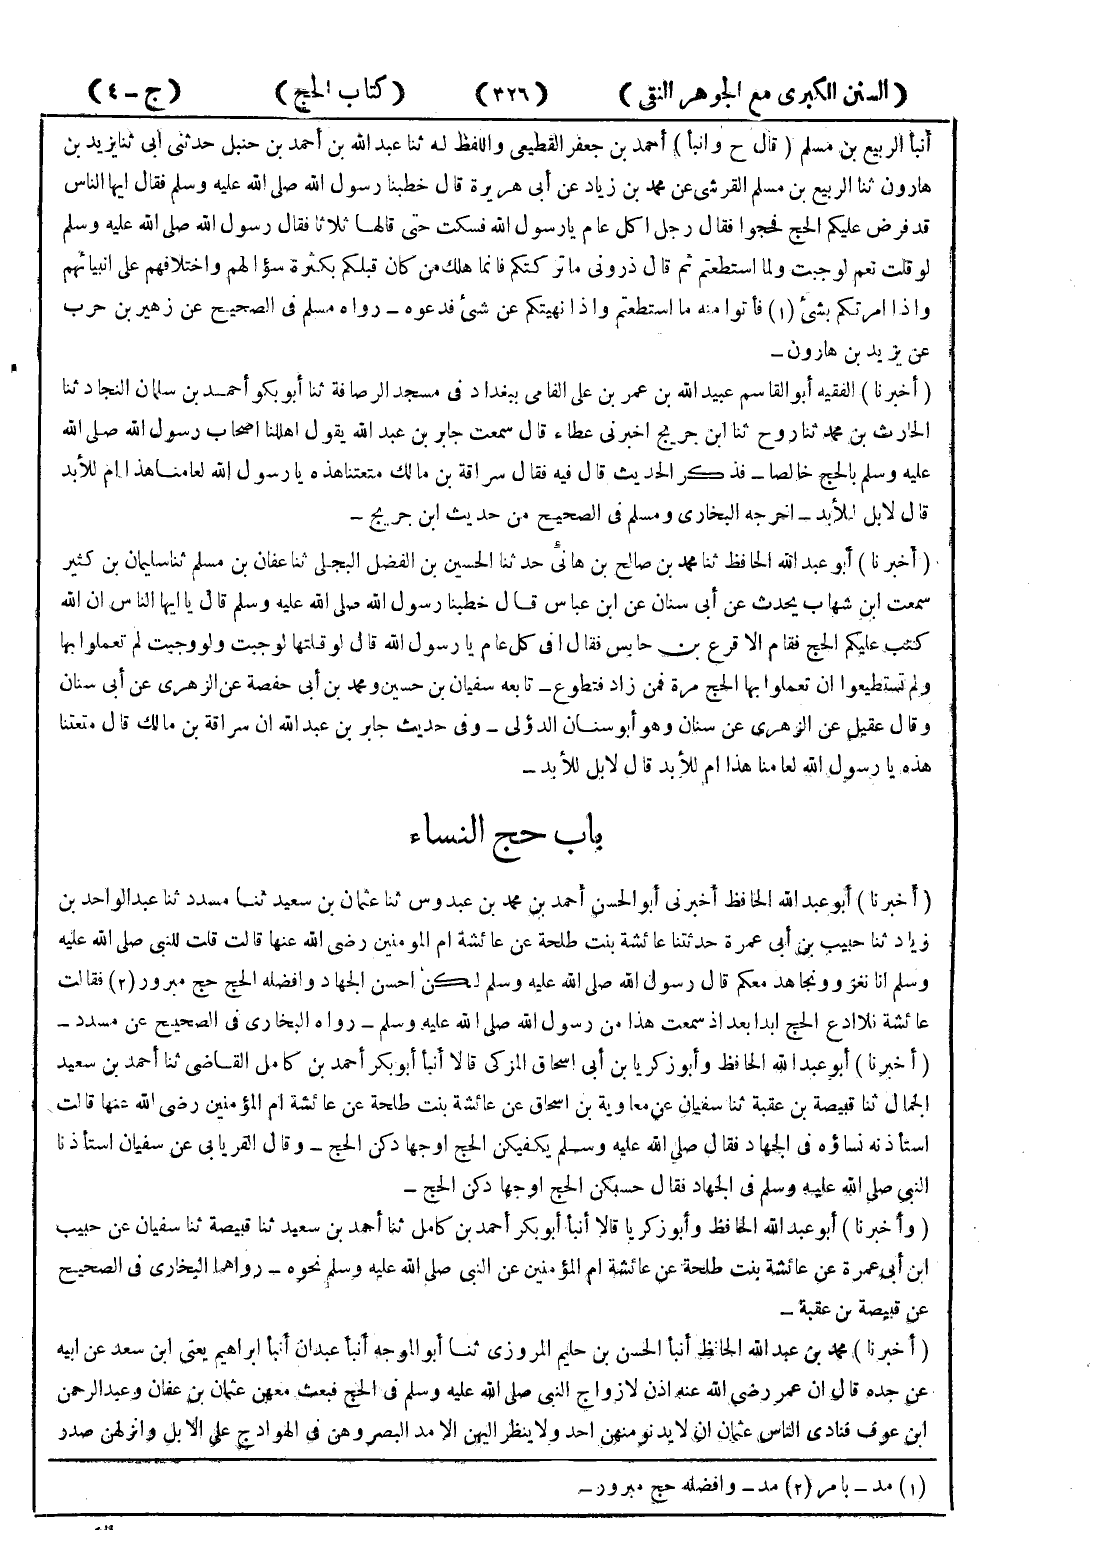 (السنن الكبرى مع الجوهر النقى) (٣٢٦) (كتاب الحج) (ج - ٤)
أنبأ الربيع بن مسلم (قال ح وانبأ) أحمد بن جعفر القطيعى واللفظ له ثنا عبدالله بن أحمد بن حنبل حدثنى أبى ثنا يزيد بن
هارون ثنا الربيع بن مسلم القرشى عن محمد بن زياد عن أبى هريرة قال خطبنا رسول الله صلى الله عليه وسلم فقال ايها الناس
قد فرض عليكم الحج فحجوا فقال رجل اكل عام يارسول الله فسكت حتى قالها ثلاثا فقال رسول الله صلى الله عليه وسلم
لو قلت نعم لوجبت ولما استطعتم ثم قال ذرونى ماتركتكم فانما هلك من كان قبلكم بكثرة سؤالهم واختلافهم على انبيائهم
واذا امرتكم بشئ (١) فأتوا منه ما استطعتم واذا نهيتكم عن شئ فدعوه - رواه مسلم فى الصحيح عن زهير بن حرب
عن يزيد بن هارون -
(أخبرنا) الفقيه أبوالقاسم عبيدالله بن عمر بن على الفامى ببغداد فى مسجد الرصافة ثنا أبوبكر أحمد بن سلمان النجاد ثنا
الحارث بن محمد ثنا روح ثنا ابن جريج اخبرنى عطاء قال سمعت جابر بن عبد الله يقول اهللنا اصحاب رسول الله صلى الله
عليه وسلم بالحج خالصا - فذكر الحديث قال فيه فقال سراقة بن مالك متعتنا هذه يا رسول الله لعامنا هذا ام للأبد
قال لا بل للأبد - اخرجه البخارى ومسلم فى الصحيح من حديث ابن جريج -
(أخبرنا) أبو عبدالله الحافظ ثنا محمد بن صالح بن هانئ حدثنا الحسين بن الفضل البجلى ثنا عفان بن مسلم ثنا سليمان بن كثير
سمعت ابن شهاب يحدث عن أبى سنان عن ابن عباس قال خطبنا رسول الله صلى الله عليه وسلم قال يا ايها الناس ان الله
كتب عليكم الحج فقام الاقرع بن حابس فقال افى كل عام يا رسول الله قال لو قلتها لوجبت ولو وجبت لم تعملوا بها
ولم تستطيعوا ان تعملوا بها الحج مرة فمن زاد فتطوع - تابعه سفيان بن حسين ومحمد بن أبى حفصة عن الزهرى عن أبى سنان
وقال عقيل عن الزهرى عن سنان وهو أبو سنان الدؤلى - وفى حديث جابر بن عبد الله ان سراقة بن مالك قال متعتنا
هذه يا رسول الله لعامنا هذا ام للأبد قال لا بل للأبد -
باب حج النساء
(أخبرنا) أبو عبدالله الحافظ أخبرنى أبوالحسن أحمد بن محمد بن عبدوس ثنا عثمان بن سعيد ثنا مسدد ثنا عبدالواحد بن
زياد ثنا حبيب بن أبى عمرة حدثتنا عائشة بنت طلحة عن عائشة ام المومنين رضى الله عنها قالت قلت للنبى صلى الله عليه
وسلم انا نغزو ونجاهد معكم قال رسول الله صلى الله عليه وسلم لكن احسن الجهاد وافضله الحج حج مبرور (٢) فقالت
عائشة فلاادع الحج ابدا بعد اذ سمعت هذا من رسول الله صلى الله عليه وسلم - رواه البخارى فى الصحيح عن مسدد -
(أخبرنا) أبو عبدالله الحافظ وأبو زكريا بن أبى اسحاق المزكى قالا أنبأ أبوبكر أحمد بن كامل القاضى ثنا أحمد بن سعيد
الجمال ثنا قبيصة بن عقبة ثنا سفيان عن معاوية بن اسحاق عن عائشة بنت طلحة عن عائشة ام المؤمنين رضى الله عنها قالت
استأذنه نساؤه فى الجهاد فقال صلى الله عليه وسلم يكفيكن الحج اوجهادكن الحج - وقال الفريابى عن سفيان استأذنا
النبى صلى الله عليه وسلم فى الجهاد فقال حسبكن الحج اوجهادكن الحج -
(وأخبرنا) أبو عبدالله الحافظ وأبو زكريا قالا أنبأ أبوبكر أحمد بن كامل ثنا أحمد بن سعيد ثنا قبيصة ثنا سفيان عن حبيب
ابن أبى عمرة عن عائشة بنت طلحة عن عائشة ام المؤمنين عن النبى صلى الله عليه وسلم نحوه - رواهما البخارى فى الصحيح
عن قبيصة بن عقبة -
(أخبرنا) محمد بن عبدالله الحافظ أنبأ الحسن بن حليم المروزى ثنا أبو الموجه أنبأ عبدان أنبأ ابراهيم يعنى ابن سعد عن ابيه
عن جده قال ان عمر رضى الله عنه اذن لازواج النبى صلى الله عليه وسلم فى الحج فبعث معهن عثمان بن عفان وعبدالرحمن
ابن عوف فنادى الناس عثمان ان لا يدنو منهن احد ولا ينظر اليهن الا مد البصر وهن فى الهوادج على الابل وانزلهن صدر
(١) مد - بامر (٢) مد - وافضله حج مبرور -